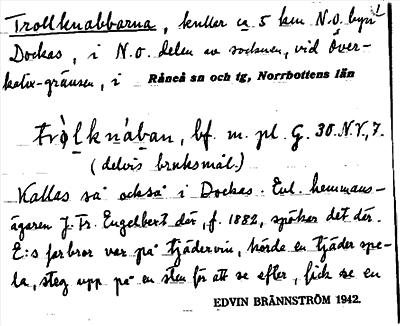 Trollknabbarna, kullar ca 5 km N.O. byn
Dockas, i N.O. delen av socknen, vid Över-
kalix-gränsen, i Råneå sn och tg, Norrbottens län
trò̩lknában, bf. m. pl. G. 30.N.V,7.
(delvis bruksmål.)
Kallas så också i Dockas. Enl. hemmans-
ägaren J. Fr. Engelbert där, f. 1882, spökar det där.
E:s farbror var på tjädervin, hörde en tjäder spe-
la, steg upp på en sten för att se efter, fick se en
EDVIN BRÄNNSTRÖM 1942.